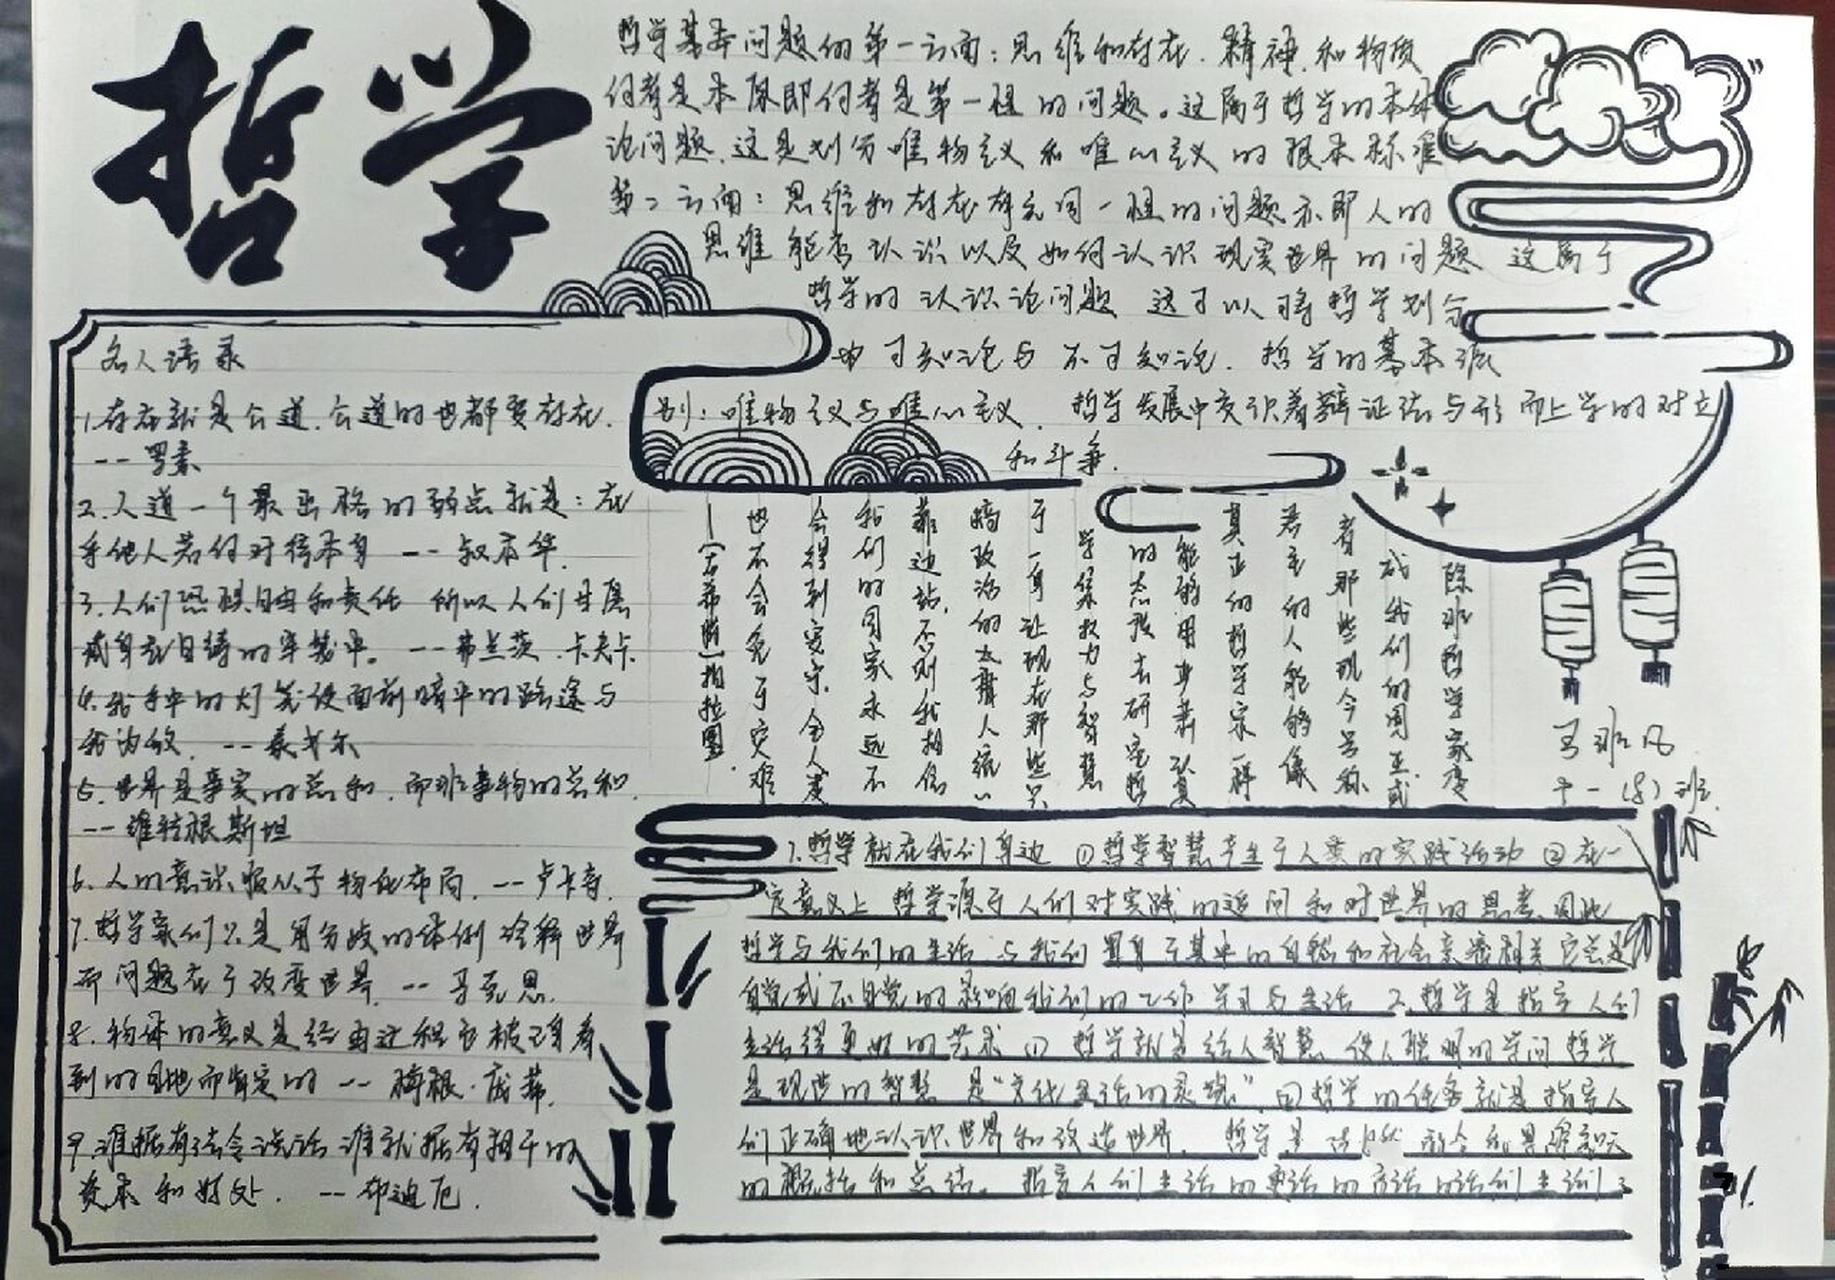 哲学
哲学基本问题的第一方面:思维和存在.精神.和物质
何者是本原即何者是第一性的问题。这属于哲学的本体
论问题.这是划分唯物主义和唯心主义的根本标准
第二方面:思维和存在有无同一性的问题亦即人的
思维能否认识以及如何认识现实世界的问题 这属于
哲学的认识论问题 这可以将哲学划分
为可知论与不可知论.哲学的基本派
别:唯物主义与唯心主义.哲学发展中交织着辩证法与形而上学的对立
和斗争.
名人语录
1.存在就是公道.公道的也都要存在.
--罗素
2.人道一个最严格的弱点就是:在
乎他人若何对待本身 --叔本华.
3.人们恐惧自由和责任 所以人们甘愿
藏身在自铸的牢笼中。--弗兰茨.卡夫卡
4.我手中的灯笼使面前暗中的路途与
我为敌.--泰戈尔
5.世界是事实的总和.而非事物的总和.
--维特根斯坦
6.人的意识服从于物化布局.--卢卡奇.
7.哲学家们只是用分歧的体例诠释世界
而问题在于改变世界.--马克思.
8.物体的意义是经由过程它被
到的的 --梅根·庞蒂.
9.谁据有法令说话谁就据有相干的
资本和好处.--布迪厄.
除非哲学家变
成我们的国王.或
者那些现今号称
君主的人能够像
真正的哲学家一样
能够用
的态度去研究哲
学使权力与智慧
于一身让现在那些只
搞政治的人统统
靠边站.否则我相信
我们的国家永远不
会得到安宁.全人类
也不会免于灾难.
—《》柏拉图
王班凡
十一(8)班
1.哲学就在我们身边 ①哲学智慧产生于人类的实践活动 ②在一
定意义上 哲学源于人们对实践的追问和对世界的思考.因此
哲学与我们的生活.与我们置身于其中的自然和社会紧密相关它总是
自觉或不自觉的影响我们的工作 学习与生活 2.哲学是指导人们
生活得更好的艺术 ①哲学就是给人智慧.使人聪明的学问哲学
是现世的智慧 是“文化生活的灵魂” ②哲学的任务就是指导人
们正确地认识世界和改造世界.哲学是
的概括和总结。指导人们生活的